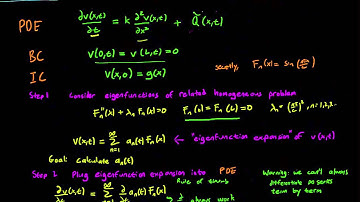 PDE ∂v(x,t)/∂t = k ∂²v(x,t)/∂x² + Q̃(x,t)
BC v(0,t) = v(L,t) = 0
IC v(x,0) = g(x) secretly, Fₙ(x) = sin(nπx/L)
Step 1 Consider eigenfunctions of related homogeneous problem
Fₙ''(x) + λₙ Fₙ(x) = 0 Fₙ(0) = Fₙ(L) = 0 λₙ = (nπ/L)², n=1,2,3..
v(x,t) = ∞Σn=1 aₙ(t) Fₙ(x) ← "eigenfunction expansion" of v(x,t)
Goal: calculate aₙ(t)
Step 2 Plug eigenfunction expansion into PDE
Rule of thumb Warning: we can't always
differentiate ∞ series
term by term
∂v(x,t)/∂t = ∞Σn=1 ∂/∂t aₙ(t) Fₙ(x) ↳ ∂ always work